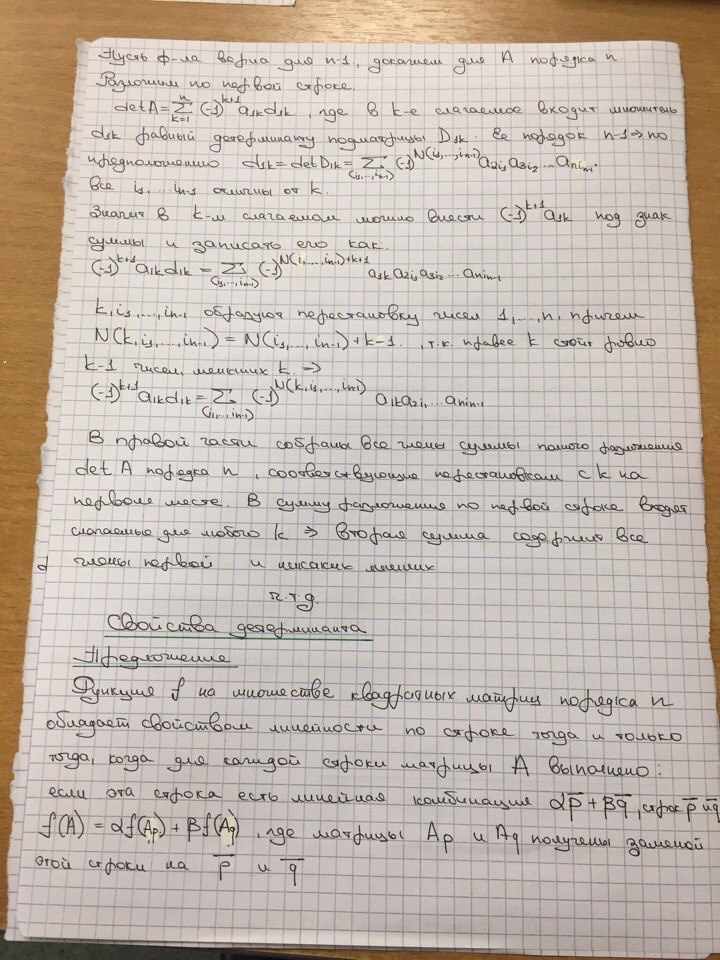 Пусть ф-ла верна для n-1., докажем для A порядка n.
Разложим по первой строке.
det A = Σ_{k=1}^{n} (-1)^{k+1} a_{1k} d_{1k}, где в k-е слагаемое входит множитель
d_{1k} равный детерминанту подматрицы D_{1k}. Ее порядок n-1 ⇒ по
предположению d_{1k} = det D_{1k} = Σ_{(i_1,...,i_{n-1})} (-1)^{N(i_1,...,i_{n-1})} a_{2i_1} a_{3i_2} ... a_{ni_{n-1}}.
Все i_1, ... i_{n-1} отличны от k.
Значит в k-м слагаемом можно внести (-1)^{k+1} a_{1k} под знак
суммы и записать его как.
(-1)^{k+1} a_{1k} d_{1k} = Σ_{(i_1,...,i_{n-1})} (-1)^{N(i_1,...,i_{n-1})+k+1} a_{1k} a_{2i_1} a_{3i_2} ... a_{ni_{n-1}}
k, i_1, ..., i_{n-1} образуют перестановку чисел 1, ..., n, причем
N(k, i_1, ..., i_{n-1}) = N(i_1, ..., i_{n-1}) + k-1. , т.к. правее k стоит ровно
k-1 чисел, меньших k. ⇒
(-1)^{k+1} a_{1k} d_{1k} = Σ_{(i_1,...,i_{n-1})} (-1)^{N(k,i_1,...,i_{n-1})} a_{1k} a_{2i_1} ... a_{ni_{n-1}}
В правой части собраны все члены суммы полного разложения
det A порядка n, соответствующие перестановкам с k на
первом месте. В сумму разложения по первой строке входят
слагаемые для любого k ⇒ вторая сумма содержит все
члены первой и никаких иных
ч.т.д.
Свойства детерминанта
Предложение
Функция f на множестве квадратных матриц порядка n
обладает свойством линейности по строке тогда и только
тогда, когда для каждой строки матрицы A выполнено:
если эта строка есть линейная комбинация αp̅ + βq̅, строк p̅ и q̅
f(A) = αf(A_p) + βf(A_q), где матрицы A_p и A_q получены заменой
этой строки на p̅ и q̅